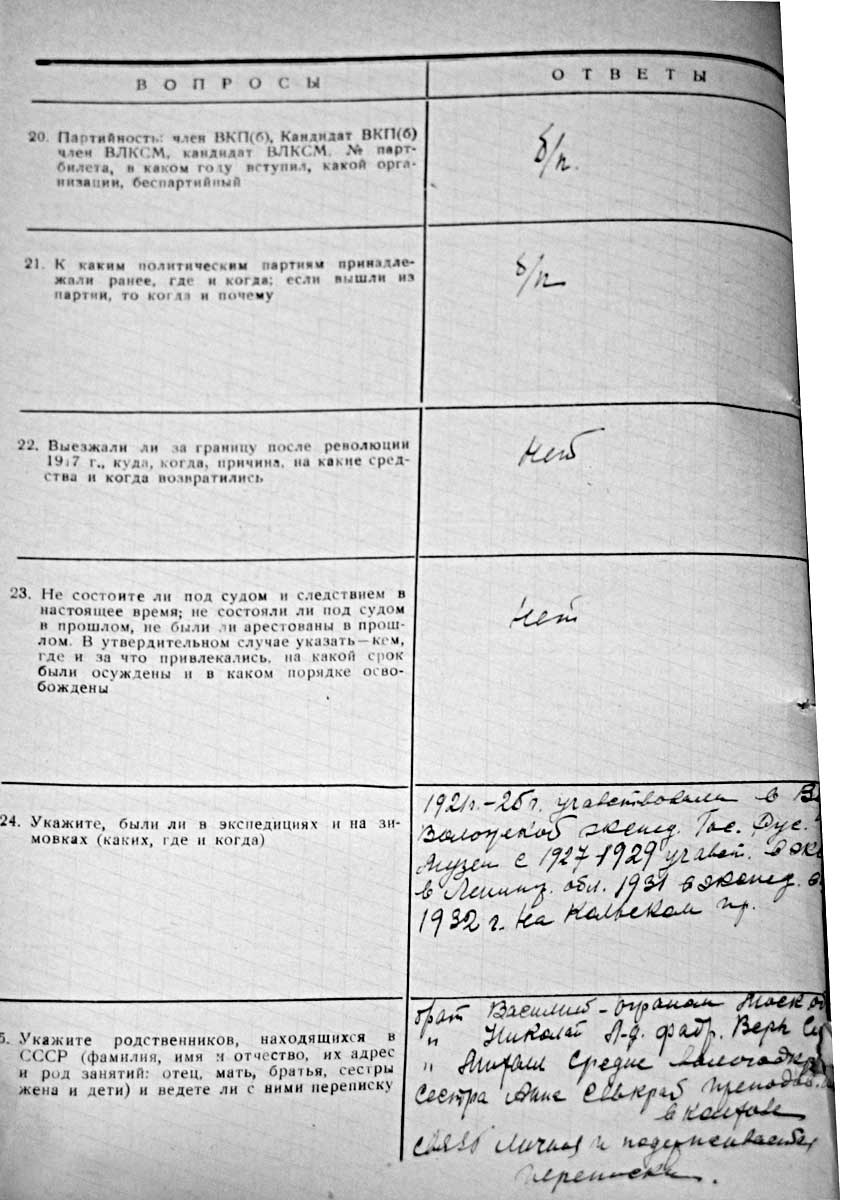 ВОПРОСЫ
ОТВЕТЫ
20. Партийность: член ВКП(б), Кандидат ВКП(б)
член ВЛКСМ, кандидат ВЛКСМ. № парт-
билета, в каком году вступил, какой орга-
низации, беспартийный
б/п.
21. К каким политическим партиям принадле-
жали ранее, где и когда; если вышли из
партии, то когда и почему
б/п
22. Выезжали ли за границу после революции
1917 г., куда, когда, причина, на какие сред-
ства и когда возвратились
Нет
23. Не состоите ли под судом и следствием в
настоящее время; не состояли ли под судом
в прошлом, не были ли арестованы в прош-
лом. В утвердительном случае указать—кем,
где и за что привлекались, на какой срок
были осуждены и в каком порядке осво-
бождены
Нет
24. Укажите, были ли в экспедициях и на зи-
мовках (каких, где и когда)
1921г.-25г. в
экспед. Гос. Рус.
Музея с 1927-1929 участ.
в Ленинг. обл. 1931 в экспед.
1932 г. на Кольском
5. Укажите родственников, находящихся в
СССР (фамилия, имя и отчество, их адрес
и род занятий: отец, мать, братья, сестры
жена и дети) и ведете ли с ними переписку
брат Василий - Моск об
" Николай фабр. Верх
" Михаил Средне
Сестра Анна
в
связь личная и
переписка.